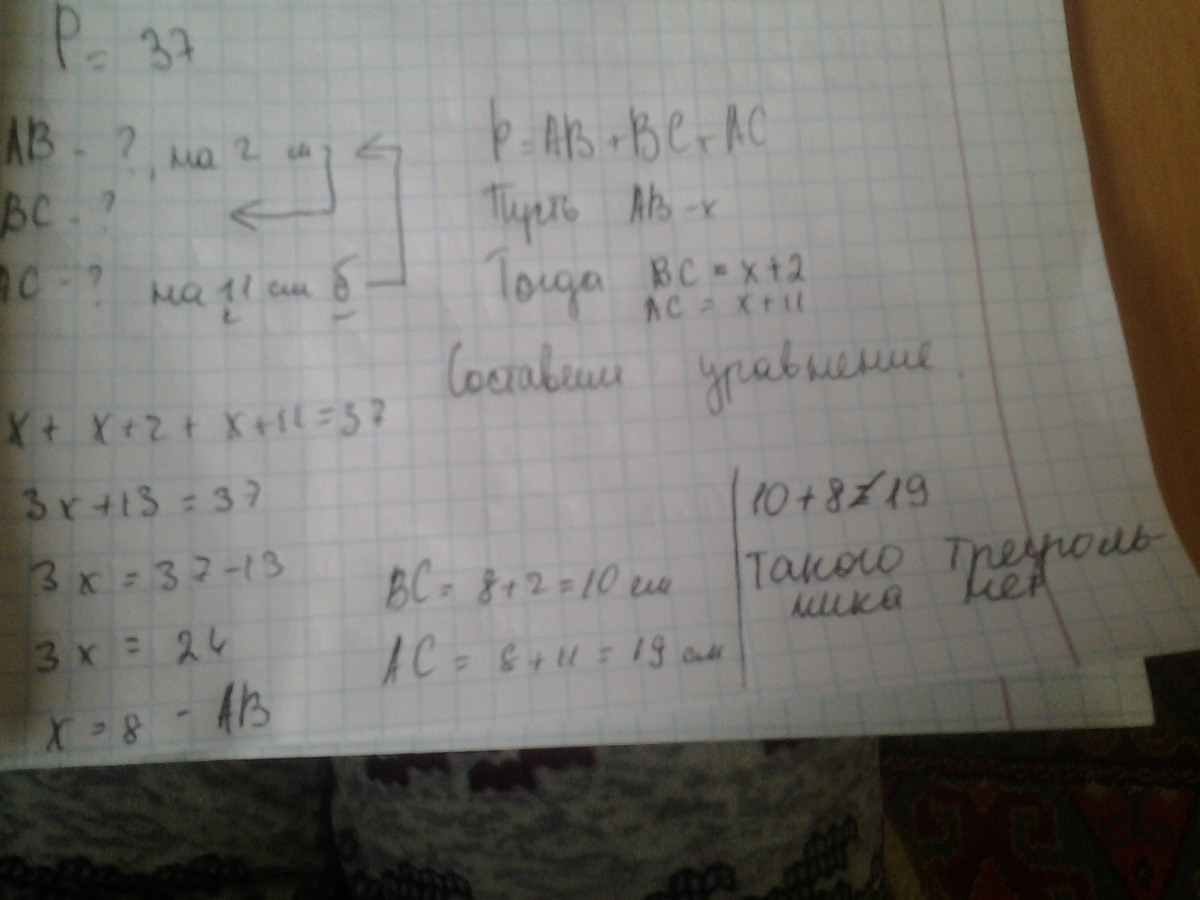 P = 37
AB - ?, на 2 см
BC - ?
AC - ? на 11 см б
P = AB + BC + AC
Пусть AB - x
Тогда BC = x+2
AC = x+11
Составим уравнение.
x + x+2 + x+11=37
3x+13 = 37
3x = 37-13
3x = 24
x = 8 - AB
BC = 8+2=10 см
AC = 8+11 = 19 см
10+8≠19
Такого треуголь-
ника нет